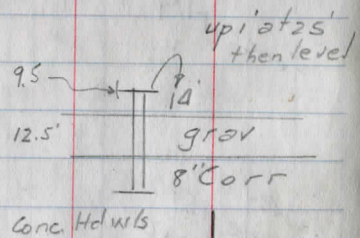 up 1' at 25'
then level
9.5
14'
12.5'
grav
8" Corr
Conc. Hdwls